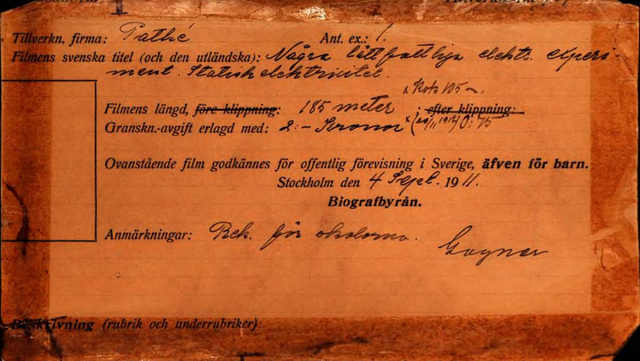 Tillverkn. firma: Pathé Ant. ex.: 1.
Filmens svenska titel (och den utländska): Några lättfattliga elektr. experi-
ment. Statisk elektricitet.
x Kols 105 m.
Filmens längd, före klippning: 185 meter ; efter klippning:
Granskn.-avgift erlagd med: 2:- Kronor x (29/11, 1912) 0:75
Ovanstående film godkännes för offentlig förevisning i Sverige, äfven för barn.
Stockholm den 4 Sept. 1911.
Biografbyrån.
Anmärkningar: Rek. för skolorna.
Beskrivning (rubrik och underrubriker):